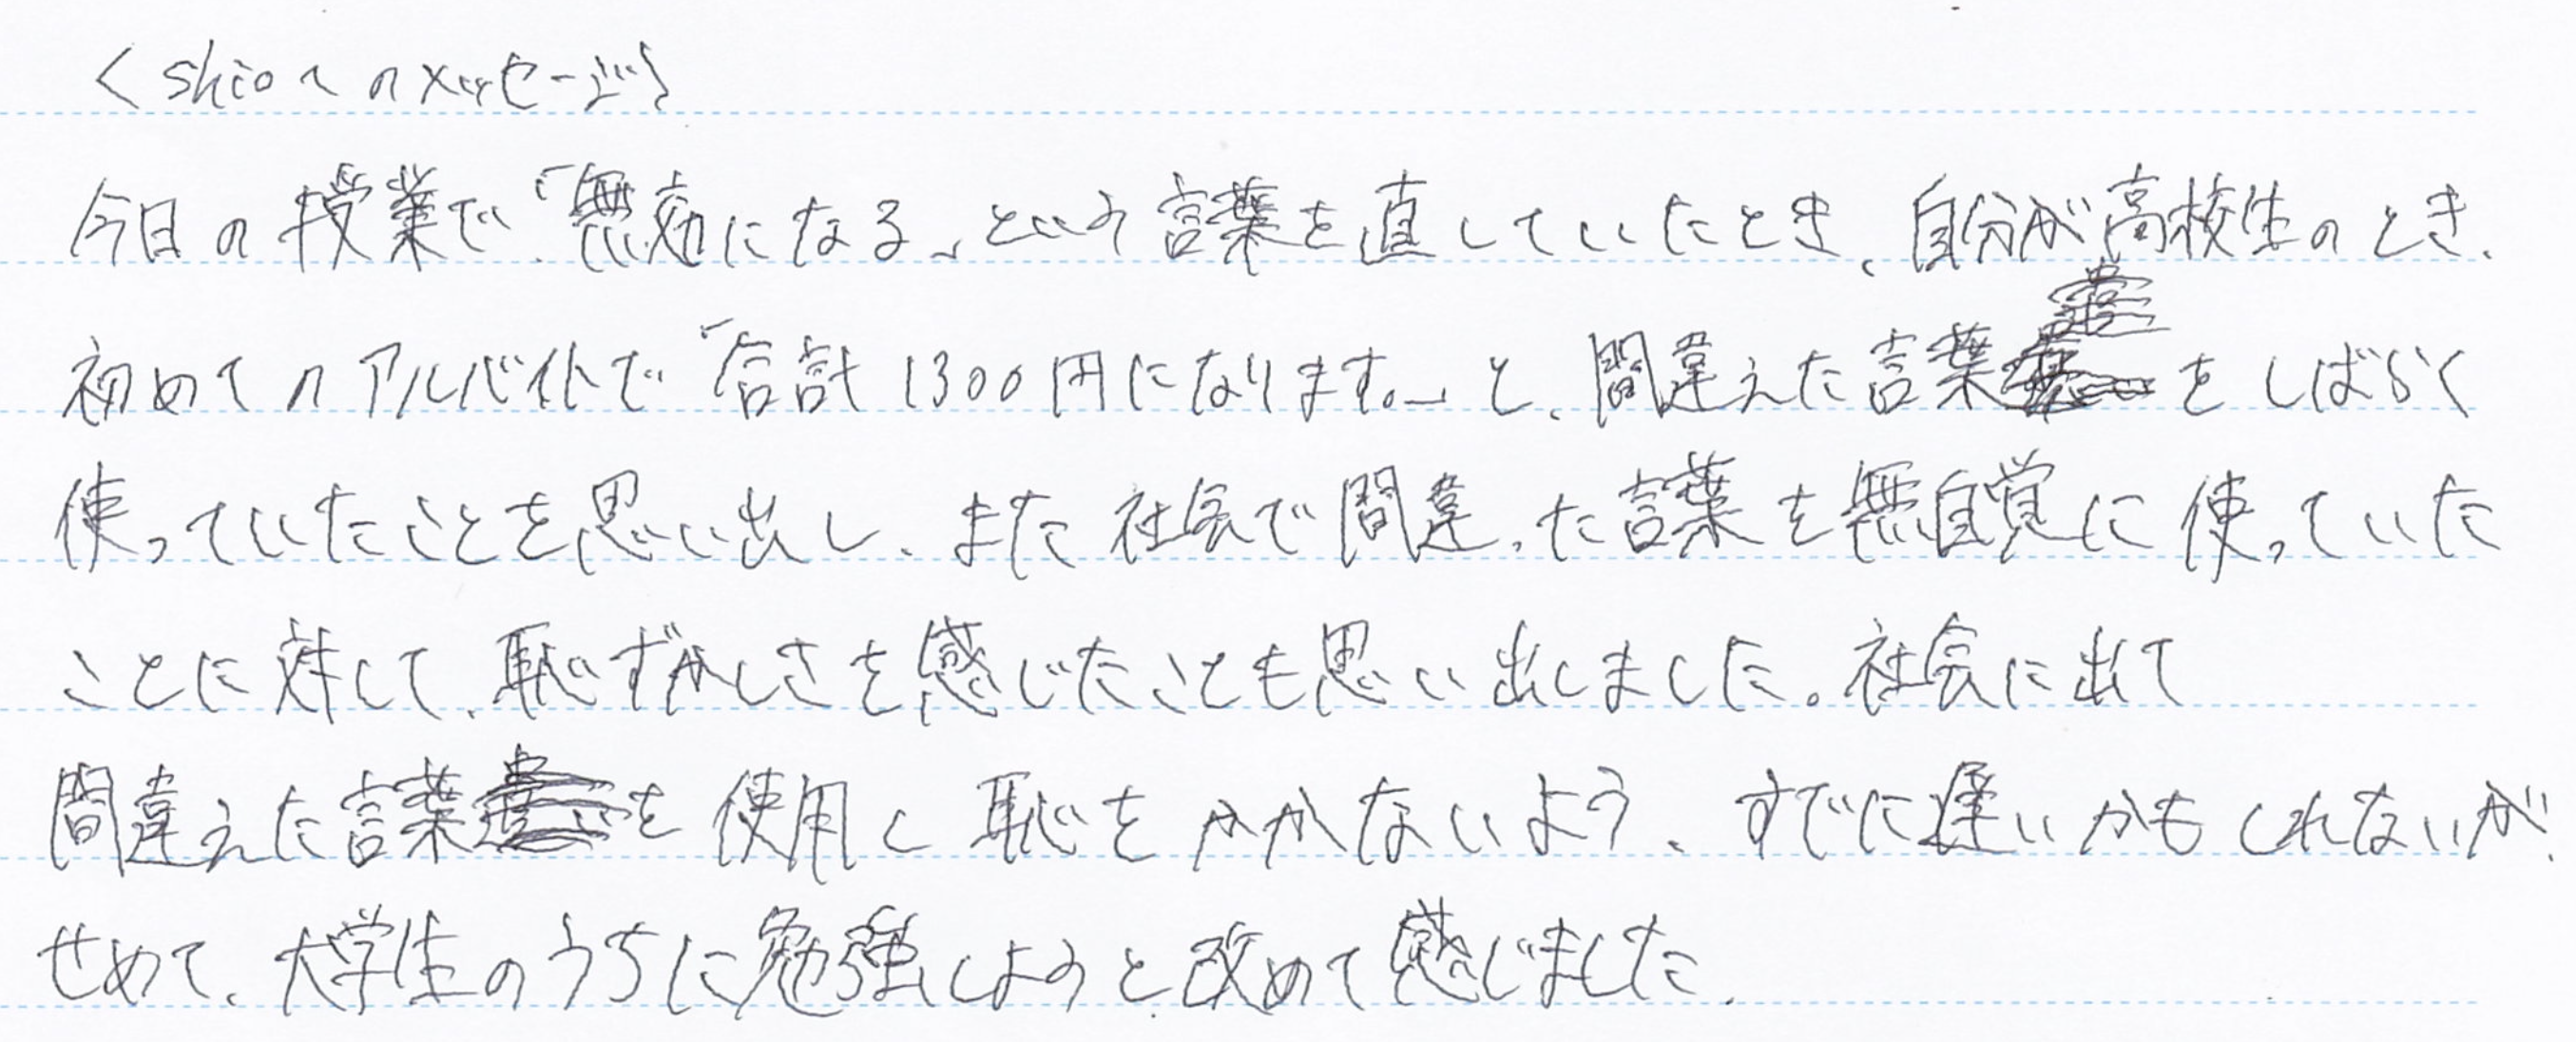 <shioへのメッセージ>
今日の授業で「無効になる」という言葉を直していたとき、自分が高校生のとき、
初めてのアルバイトで「合計1300円になります。」と、間違えた言葉をしばらく
使っていたことを思い出し、また社会で間違った言葉を無自覚に使っていた
ことに対して、恥ずかしさを感じたことも思い出しました。社会に出て
間違えた言葉を使用し恥をかかないよう、すでに遅いかもしれないが、
せめて、大学生のうちに勉強しようと改めて感じました。